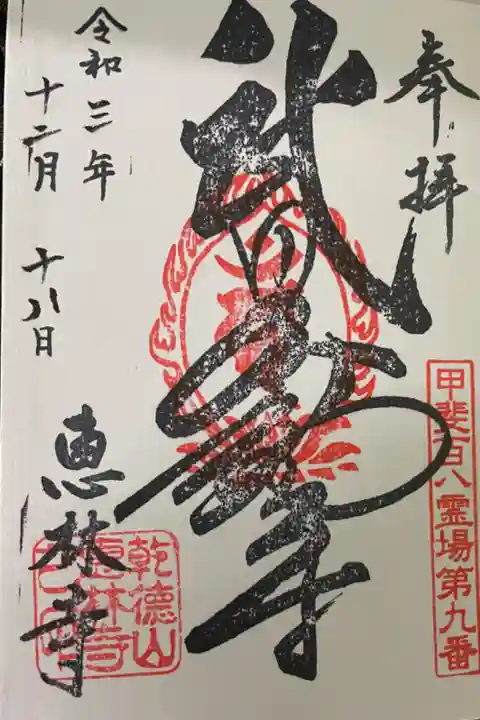 奉拝
甲斐百八霊場第九番
武田不動尊
令和三年
十二月 十八日
恵林寺
乾德山
惠林寺